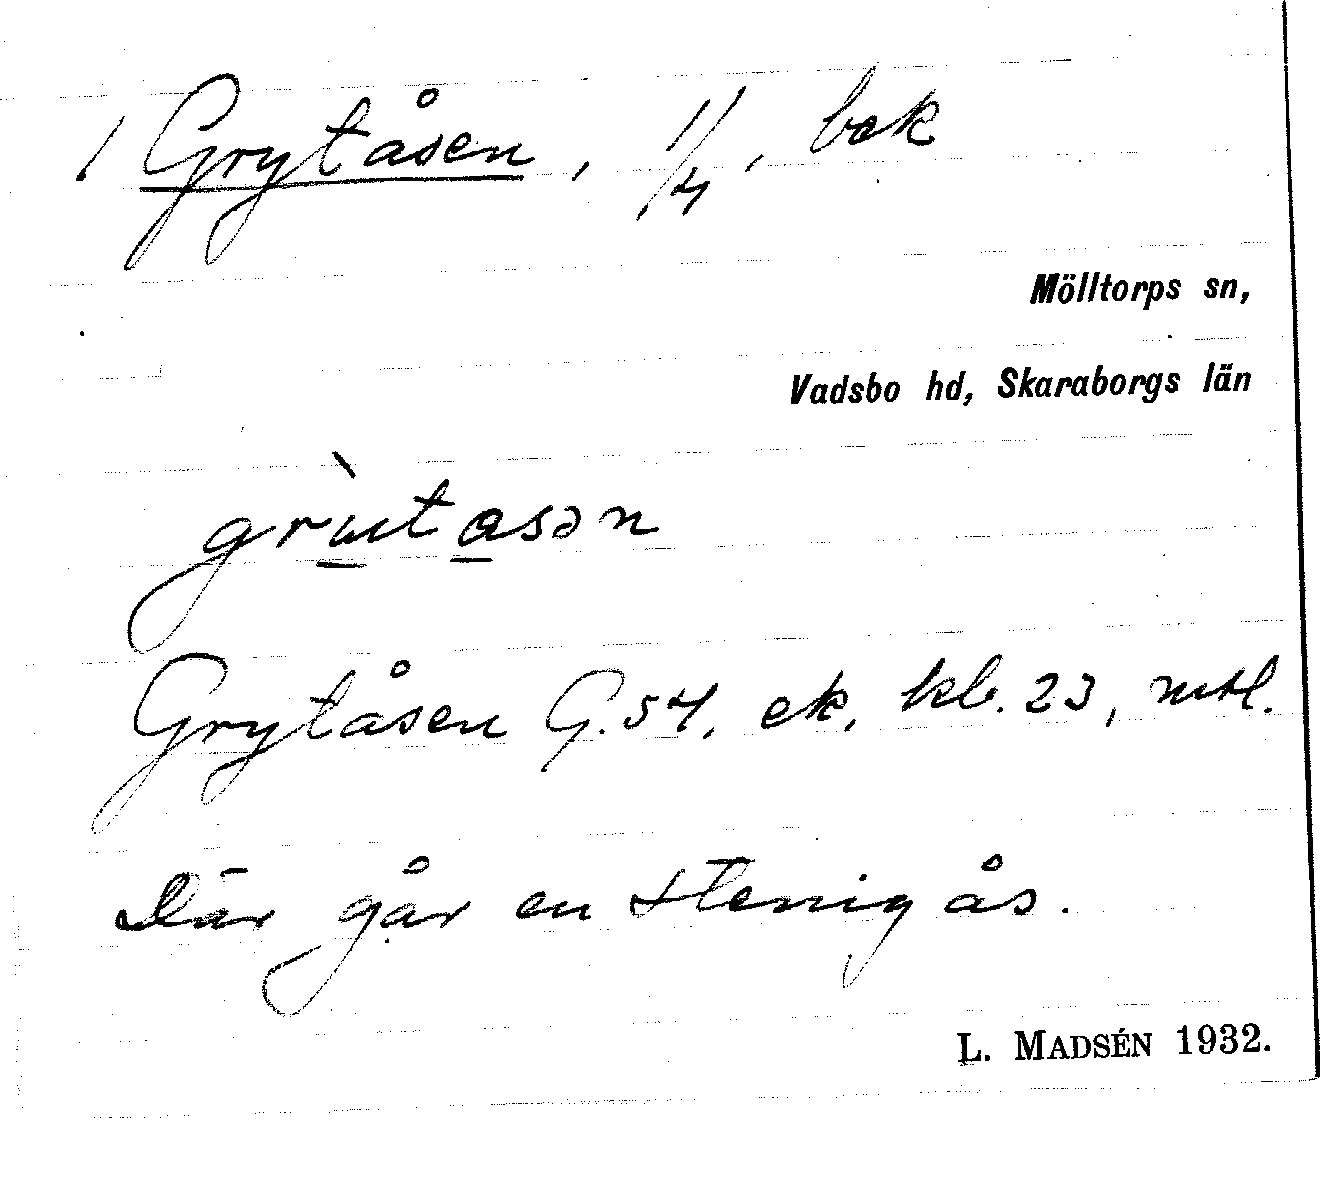 1 Grytåsen, 1/4, bek
Mölltorps sn,
Vadsbo hd, Skaraborgs län
grùtasən
Grytåsen G.54, ek, kb. 23, mtl.
Där går en stenig ås.
L. MADSÉN 1932.